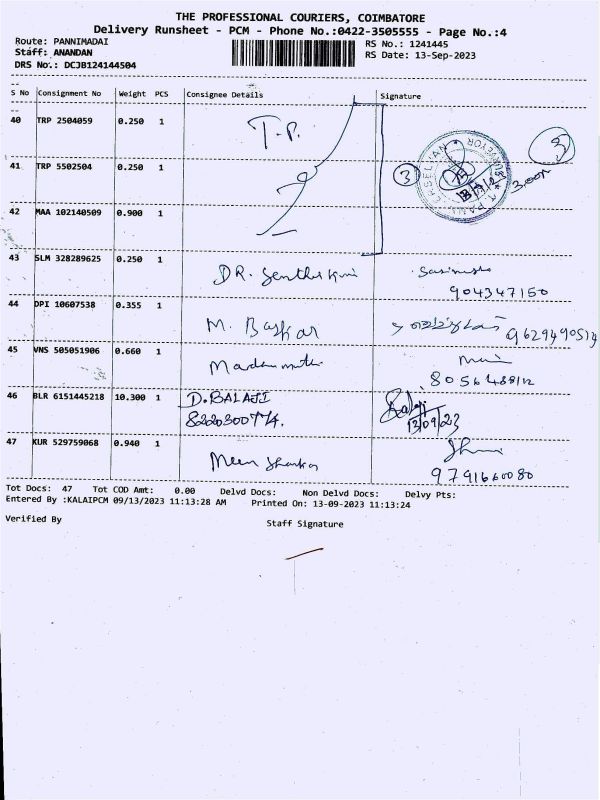 THE PROFESSIONAL COURIERS, COIMBATORE
Delivery Runsheet - PCM - Phone No.:0422-3505555 - Page No.:4
Route: PANNIMADAI
RS No.: 1241445
Staff: ANANDAN
RS Date: 13-Sep-2023
DRS No.: DCJB124144504
S No Consignment No Weight PCS Consignee Details Signature
40 TRP 2504059 0.250 1 T.P.
41 TRP 5502504 0.250 1 3 3.00
42 MAA 102140509 0.900 1
43 SLM 328289625 0.250 1 DR.
904347150
44 DPI 10607538 0.355 1 M. Baskar 9629490514
45 VNS 505051906 0.660 1
46 BLR 6151445218 10.300 1 D.BALAJI Balaji
8220300774. 13/09/23
47 KUR 529759068 0.940 1
9791660080
Tot Docs: 47 Tot COD Amt: 0.00 Delvd Docs: Non Delvd Docs: Delvy Pts:
Entered By :KALAIPCM 09/13/2023 11:13:28 AM Printed On: 13-09-2023 11:13:24
Verified By
Staff Signature